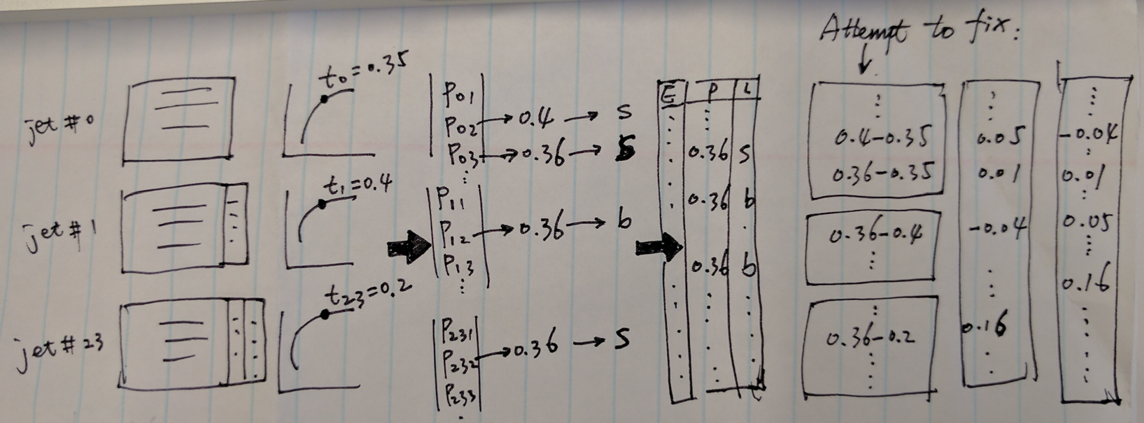 Attempt to fix:
jet #0
t₀=0.35
P₀₁
P₀₂ → 0.4 → s
P₀₃ → 0.36 → s
jet #1
t₁=0.4
P₁₁
P₁₂ → 0.36 → b
P₁₃
jet #23
t₂₃=0.2
P₂₃₁
P₂₃₂ → 0.36 → s
P₂₃₃
E P L
0.36 s
0.36 b
0.36 b
0.4-0.35
0.36-0.35
0.36-0.4
0.36-0.2
0.05
0.01
-0.04
0.16
-0.04
0.01
0.05
0.16